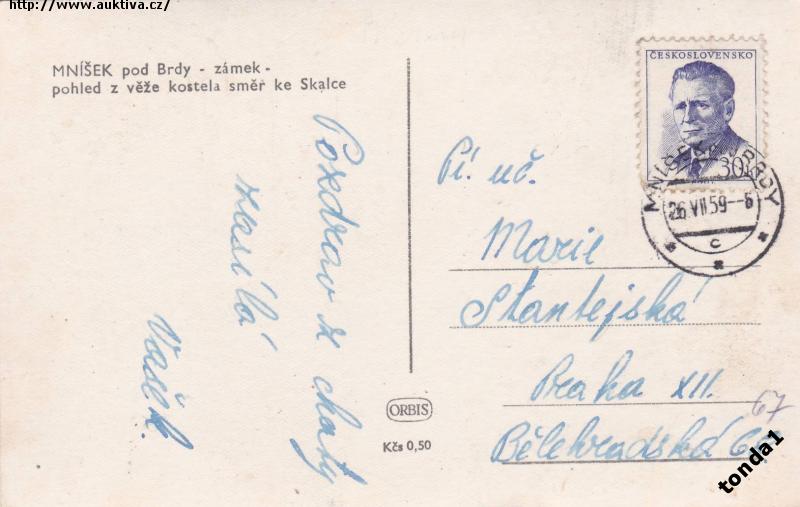 http://www.auktiva.cz/
MNÍŠEK pod Brdy - zámek -
pohled z věže kostela směř ke Skalce
Pozdrav z chaty
zasílá
Vašek.
ČESKOSLOVENSKO
30
MNÍŠEK P. BRDY
26.VII.59--8
c
Pí. uč.
Marie
Stantejská
Praha XII.
67
Bělehradská
ORBIS
Kčs 0,50
tonda1